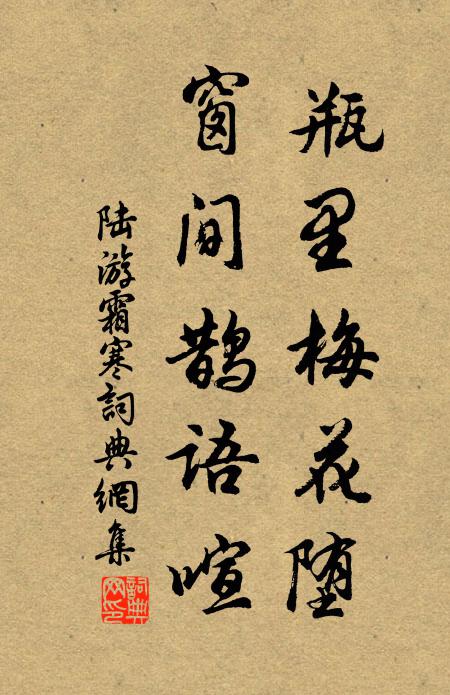 瓶里梅花堕
窗间鹊语喧
陆游霜寒詞典網集
詞典
网印